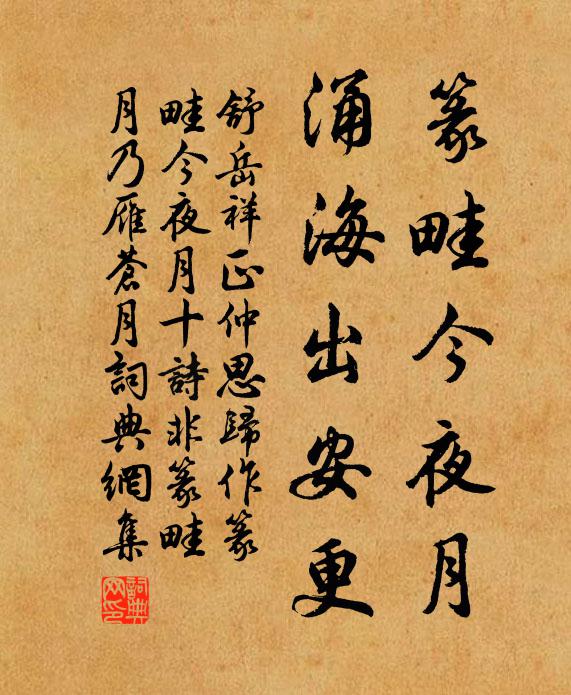 篆畦今夜月
涌海出安更
舒岳祥正仲思歸作篆
畦今夜月十詩非篆畦
月乃雁蒼月詞典網集
詞典网印